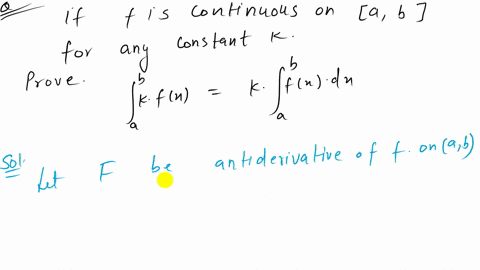 Q if f is continuous on [a, b]
for any constant k.
Prove.
∫_a^b k.f(x) = k.∫_a^b f(x).dx
Sol. Let F be antiderivative of f. on (a,b)